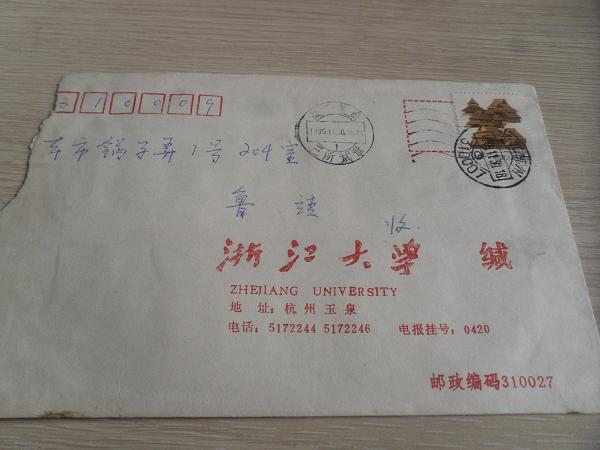 310009
本市锅子弄1号204室
鲁 收
1995.11.30.18
浙江大学 缄
ZHEJIANG UNIVERSITY
地 址：杭州玉泉
电话：5172244 5172246 电报挂号：0420
邮政编码310027